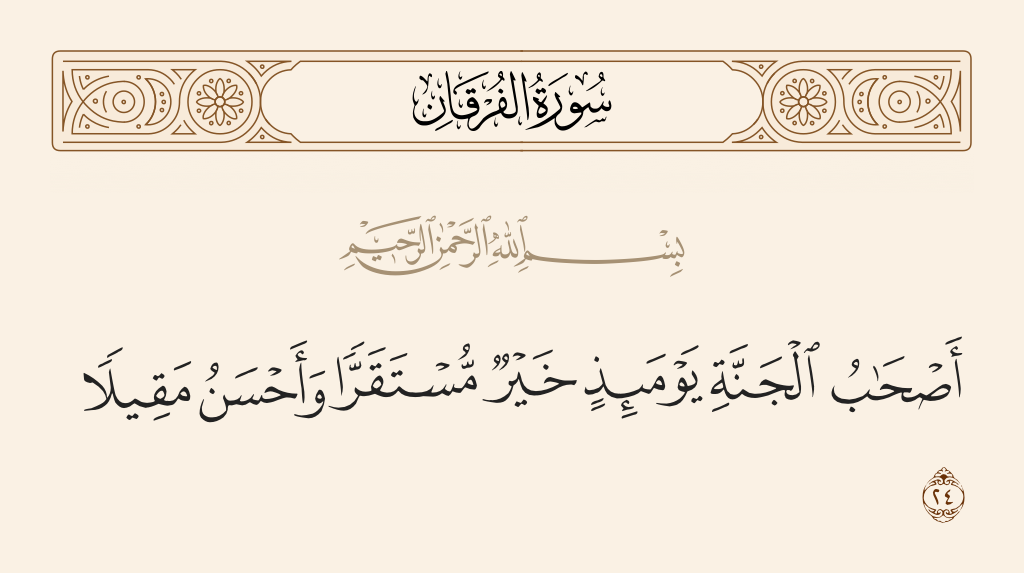 سُورَةُ الفُرْقَانِ
بِسْمِ ٱللَّهِ ٱلرَّحْمَٰنِ ٱلرَّحِيمِ
أَصْحَٰبُ ٱلْجَنَّةِ يَوْمَئِذٍ خَيْرٌ مُّسْتَقَرًّا وَأَحْسَنُ مَقِيلًا
٢٤